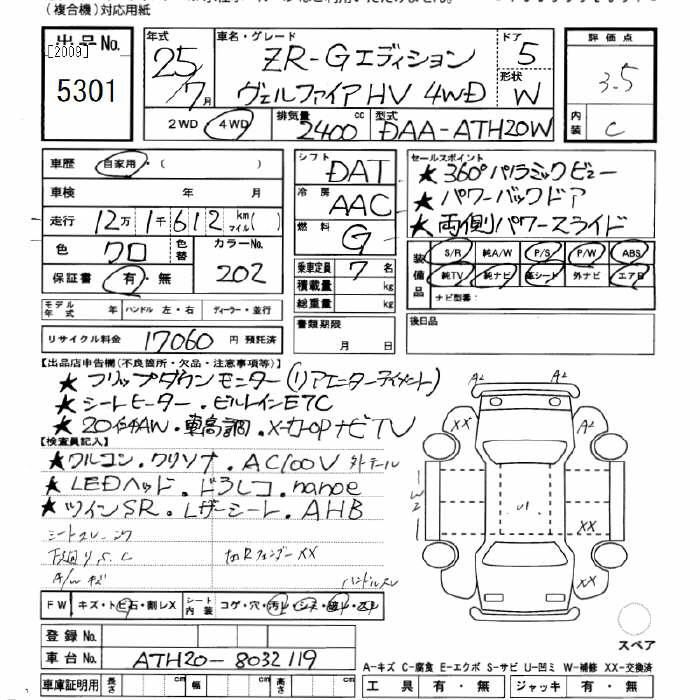 (複合機)対応用紙
出品No.
[2009]
5301
年式 25/7月
車名・グレード ZR-Gエディション
ヴェルファイアHV 4WD
ドア 5
形状 W
2WD・4WD
排気量 2400 cc
型式 DAA-ATH20W
評価点 3.5
内装 C
車歴 自家用・( )
車検 年 月
走行 12万1千612 km マイル( )
色 クロ 色替 カラーNo. 202
保証書 有・無
モデル年式 ハンドル 左・右 ディーラー・並行
リサイクル料金 17060 円 預託済
シフト DAT
冷房 AAC
燃料 G
乗車定員 7 名
積載量 kg
総重量 kg
書類期限 月 日
セールスポイント
★ 360°パノラミックビュー
★ パワーバックドア
★ 両側パワースライド
装備品 S/R 純A/W P/S P/W ABS
純TV 純ナビ 革シート 外ナビ エアB
ナビ型番:
後日品
【出品店申告欄(不良箇所・欠品・注意事項等)】
★ フリップダウンモニター(リアエンターテイメント)
★ シートヒーター・ビルトインETC
★ 20インチAW・車高調・メーカーOPナビTV
【検査員記入】
★クルコン・クリソナ・AC100V
★LEDヘッド・ドラレコ・nanoe
★ツインSR・レザーシート・AHB
下廻りS.C
A/Wキズ
FW キズ・トビ石・割レX シート内装 コゲ・穴・汚レ・シミ・破レ・スレ
登録No.
車台No. ATH20-8032119
車庫証明用 長さ cm 幅 cm 高さ cm
A2
A2
A2
W2
U1
XX
XX
スペア
A-キズ C-腐食 E-エクボ S-サビ U-凹ミ W-補修 XX-交換済
工具 有・無 ジャッキ 有・無